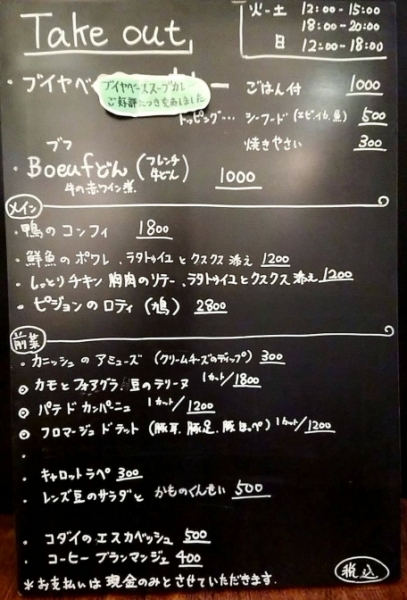 Take out
火-土 12:00-15:00
18:00-20:00
日 12:00-18:00
・ブイヤベ
ブイヤベーススープカレー
ご好評につき
ごはん付 1000
トッピング… シーフード(エビ、イカ、魚) 500
焼きやさい 300
ブフ
Boeufどん (フレンチ牛どん) 1000
牛の赤ワイン煮
メイン
・鴨のコンフィ 1800
・鮮魚のポワレ、ラタトゥイユとクスクス添え 1200
・しっとりチキン胸肉のソテー、ラタトゥイユとクスクス添え 1200
・ピジョンのロティ(鳩) 2800
前菜
・カニッシュのアミューズ (クリームチーズのディップ) 300
カモとフォアグラ、豆のテリーヌ 1カット/1800
パテドカンパーニュ 1カット/1200
フロマージュドテット (豚耳、豚足、豚ほっぺ) 1カット/1200
・
・キャロットラペ 300
・レンズ豆のサラダと かものくんせい 500
・コダイのエスカベッシュ 500
・コーヒーブランマンジェ 400
税込
*お支払いは現金のみとさせていただきます.